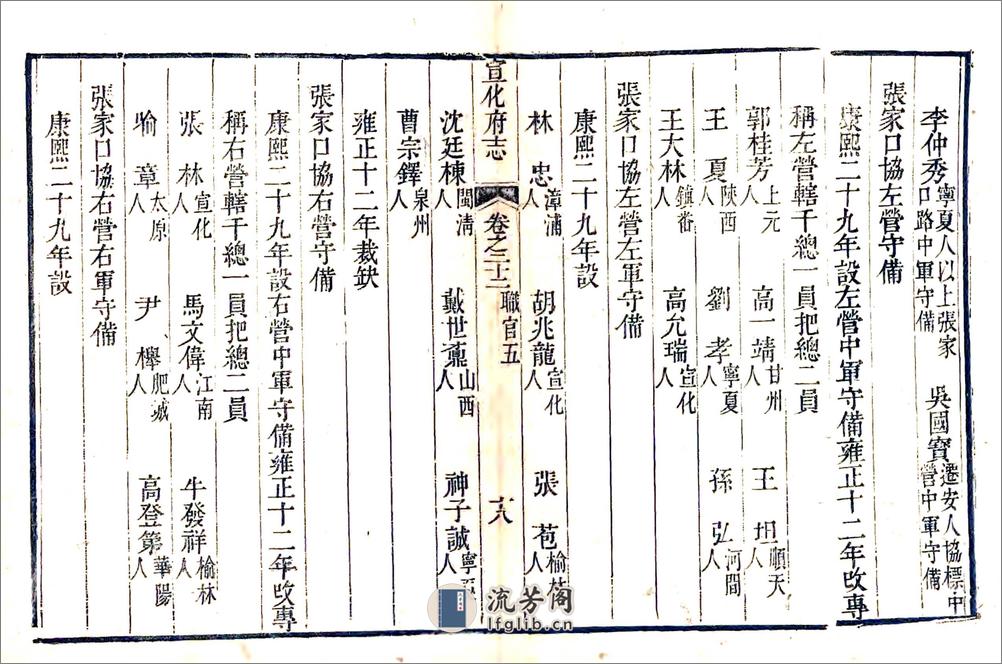 李仲秀寧夏人以上張家口路中軍守備 吳國寶遷安人協標中營中軍守備
張家口協左營守備
康熙二十九年設左營中軍守備雍正十二年改專
稱左營轄千總一員把總二員
郭桂芳上元人 高一靖甘州人 王坦順天人
王夏陝西人 劉孝寧夏人 孫弘河間人
王大林鎮畨人 高允瑞宣化人
張家口協左營左軍守備
康熙二十九年設
林忠漳浦人 胡兆龍宣化人 張苞榆林人
宣化府志 卷之二十二 職官五 十八
沈廷棟閩清人 戴世薰山西人 神子誠寧
曹宗鐸泉州人
雍正十二年裁缺
張家口協右營守備
康熙二十九年設右營中軍守備雍正十二年改專
稱右營轄千總一員把總二員
張林宣化人 馬文偉江南人 牛發祥榆林人
喻章太原人 尹檉肥城人 高登第華陽人
張家口協右營右軍守備
康熙二十九年設
流芳閣
lfglib.cn